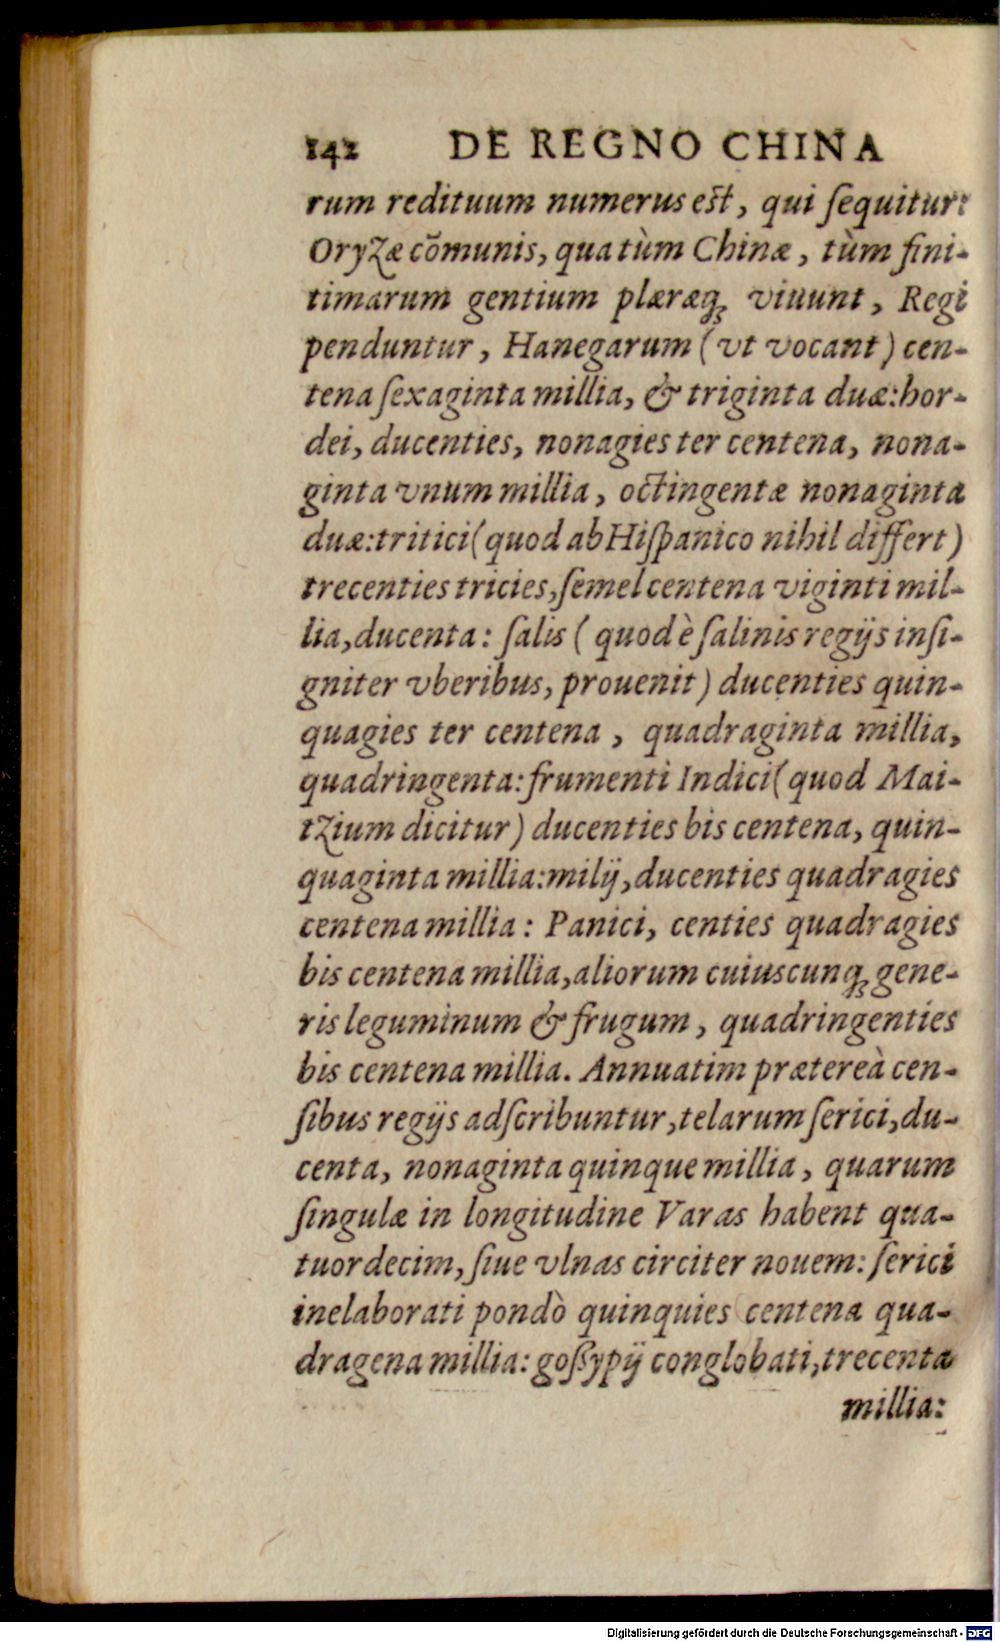 142 DE REGNO CHINA
rum redituum numerus est, qui ſequitur:
Oryzæ cõmunis, qua tùm Chinæ, tùm fini-
timarum gentium plæræq; viuunt, Regi
penduntur, Hanegarum (vt vocant) cen-
tena ſexaginta millia, & triginta duæ: hor-
dei, ducenties, nonagies ter centena, nona-
ginta vnum millia, octingentæ nonaginta
duæ: tritici (quod ab Hiſpanico nihil differt)
trecenties tricies, ſemel centena viginti mil-
lia, ducenta: ſalis (quod è ſalinis regijs inſi-
gniter vberibus, prouenit) ducenties quin-
quagies ter centena, quadraginta millia,
quadringenta: frumenti Indici (quod Mai-
tzium dicitur) ducenties bis centena, quin-
quaginta millia: milij, ducenties quadragies
centena millia: Panici, centies quadragies
bis centena millia, aliorum cuiuscunq; gene-
ris leguminum & frugum, quadringenties
bis centena millia. Annuatim prætereà cen-
ſibus regijs adſcribuntur, telarum ſerici, du-
centa, nonaginta quinque millia, quarum
ſingulæ in longitudine Varas habent qua-
tuordecim, ſiue vlnas circiter nouem: ſerici
inelaborati pondò quinquies centena qua-
dragena millia: goßypij conglobati, trecenta
millia:
Digitalisierung gefördert durch die Deutsche Forschungsgemeinschaft - DFG